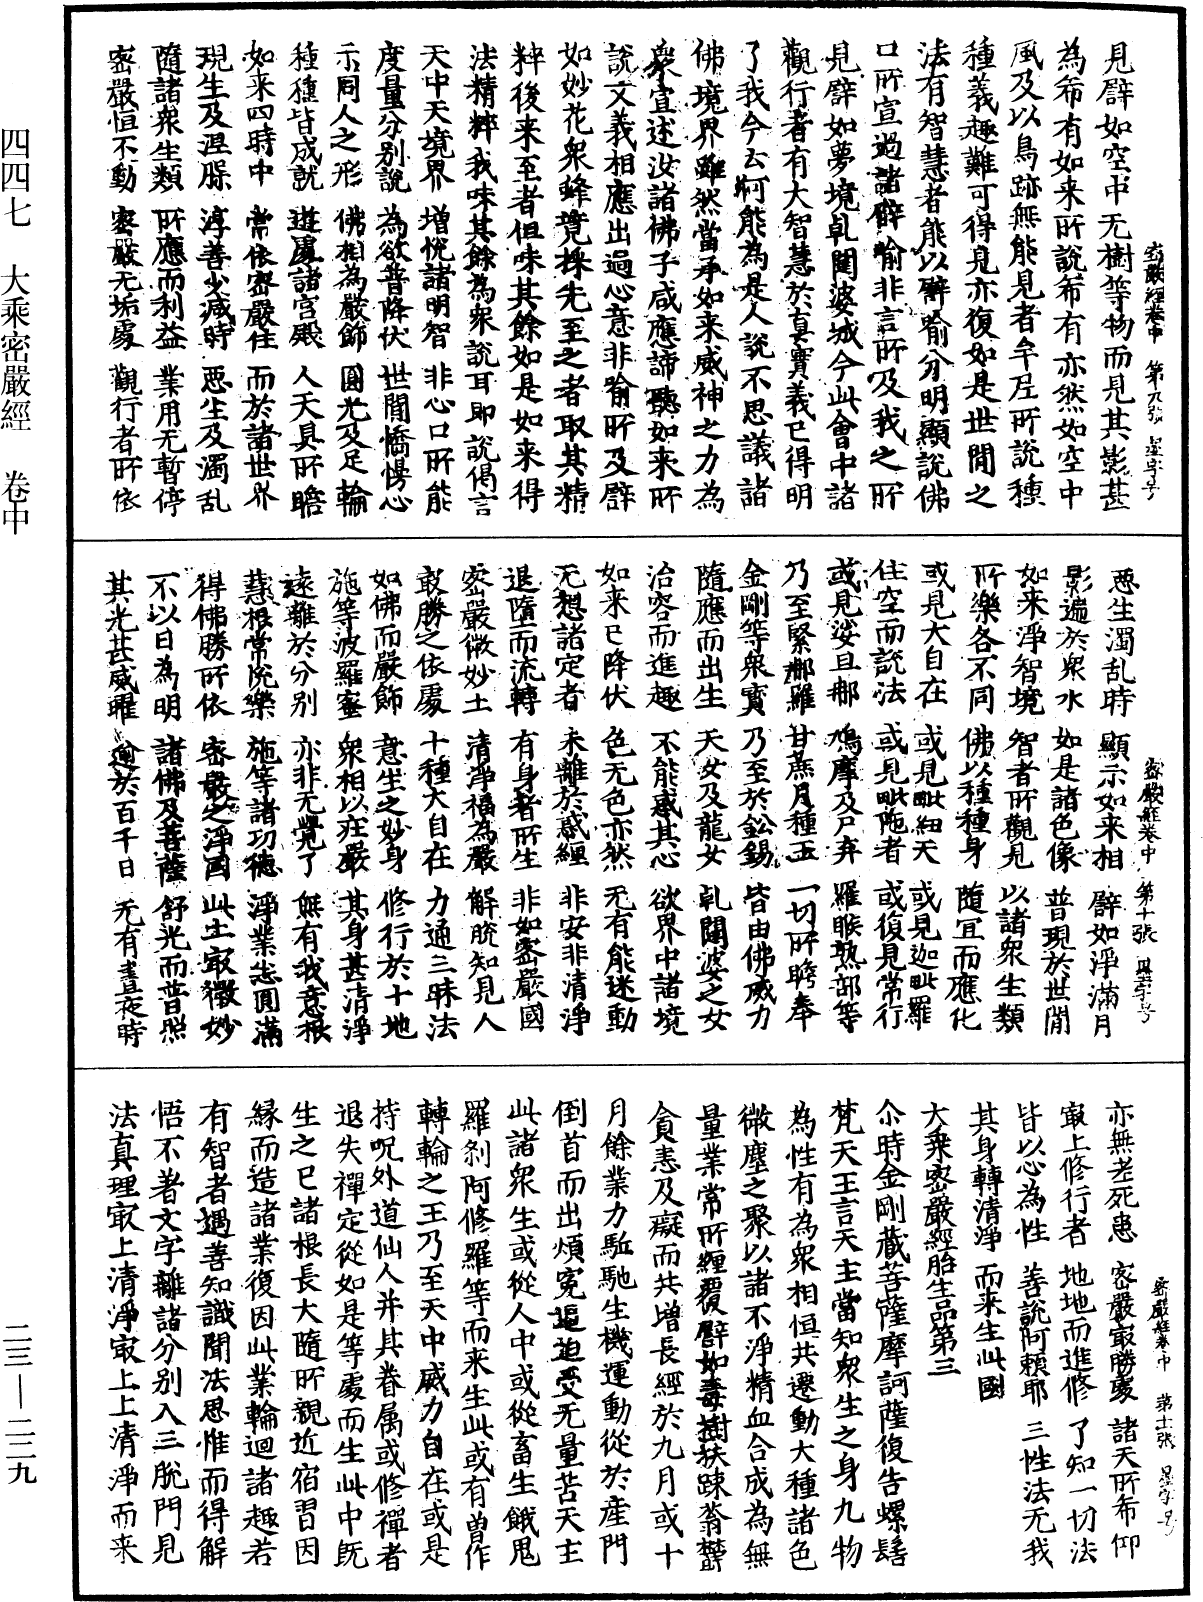 見譬如空中无樹等物而見其影甚
為希有如来所說希有亦然如空中
風及以鳥跡無能見者牟尼所說種
種義趣難可得見亦復如是世閒之
法有智慧者能以譬喻分明顯說佛
口所宣過諸譬喻非言所及我之所
見譬如夢境乹闥婆城今此會中諸
觀行者有大智慧於真實義已得明
了我今云何能為是人說不思議諸
佛境界雖然當承如来威神之力為
衆宣述汝諸佛子咸應諦聽如来所
說文義相應出過心意非喻所及譬
如妙花衆蜂竟採先至之者取其精
粹後来至者但味其餘如是如来得
法精粹我味其餘為衆說耳即說偈言
天中天境界　增悅諸明智　非心口所能
度量分別說　為欲普降伏　世閒憍慢心
示同人之形　佛相為嚴飾　圓光及足輪
種種皆成就　遊處諸宮殿　人天具所瞻
如来四時中　常依密嚴住　而於諸世界
現生及涅槃　淳善少減時　惡生及濁乱
隨諸衆生類　所應而利益　業用无暫停
密嚴恒不動　密嚴无垢處　觀行者所依
密嚴經卷中　第九張　墨字号
惡生濁乱時　顯示如来相　譬如淨滿月
影遍於衆水　如是諸色像　普現於世閒
如来淨智境　智者所觀見　以諸衆生類
所樂各不同　佛以種種身　隨宜而應化
或見大自在　或見毗紐天　或見迦毗羅
住空而說法　或見毗陁者　或復見常行
或見娑且那　鳩摩及尸弃　羅睺熟部等
乃至緊那羅　甘蔗月種王　一切所瞻奉
金剛等衆寶　乃至於鈆錫　皆由佛威力
隨應而出生　天女及龍女　乹闥婆之女
冶容而進趣　不能惑其心　欲界中諸境
如来已降伏　色无色亦然　无有能迷動
无想諸定者　未離於惑纏　非安非清淨
退墮而流轉　有身者所生　非如密嚴國
密嚴微妙土　清淨福為嚴　解脫知見人
㝡勝之依處　十種大自在　力通三昧法
如佛而嚴飾　意生之妙身　修行於十地
施等波羅蜜　衆相以莊嚴　其身甚清淨
遠離於分別　亦非无覺了　無有我意根
慧根常悅樂　施等諸功德　淨業悉圓滿
得佛勝所依　密嚴之淨國　此土㝡微妙
不以日為明　諸佛及菩薩　舒光而普照
其光甚威曜　逾於百千日　无有晝夜時
密嚴經卷中　第十張　墨字号
亦無老死患　密嚴㝡勝處　諸天所希仰
㝡上修行者　地地而進修　了知一切法
皆以心為性　善說阿賴耶　三性法无我
其身轉清淨　而来生此國
大乘密嚴經胎生品第三
尒時金剛藏菩薩摩訶薩復告螺髻
梵天王言天主當知衆生之身九物
為性有為衆相恒共遷動大種諸色
微塵之聚以諸不淨精血合成為無
量業常所纏覆譬如毒樹扶踈蓊欝
貪恚及癡而共增長經於九月或十
月餘業力駈馳生機運動從於産門
倒首而出煩寃逼迫受无量苦天主
此諸衆生或從人中或從畜生餓鬼
羅刹阿修羅等而来生此或有曾作
轉輪之王乃至天中威力自在或是
持呪外道仙人并其眷属或修禪者
退失禪定從如是等處而生此中既
生之已諸根長大隨所親近宿習因
緣而造諸業復因此業輪迴諸趣若
有智者遇善知識聞法思惟而得解
悟不著文字離諸分別入三脫門見
法真理㝡上清淨㝡上上清淨而来
密嚴經卷中　第十一張　墨字号
四四七　大乘密嚴經　卷中
二三—二二九